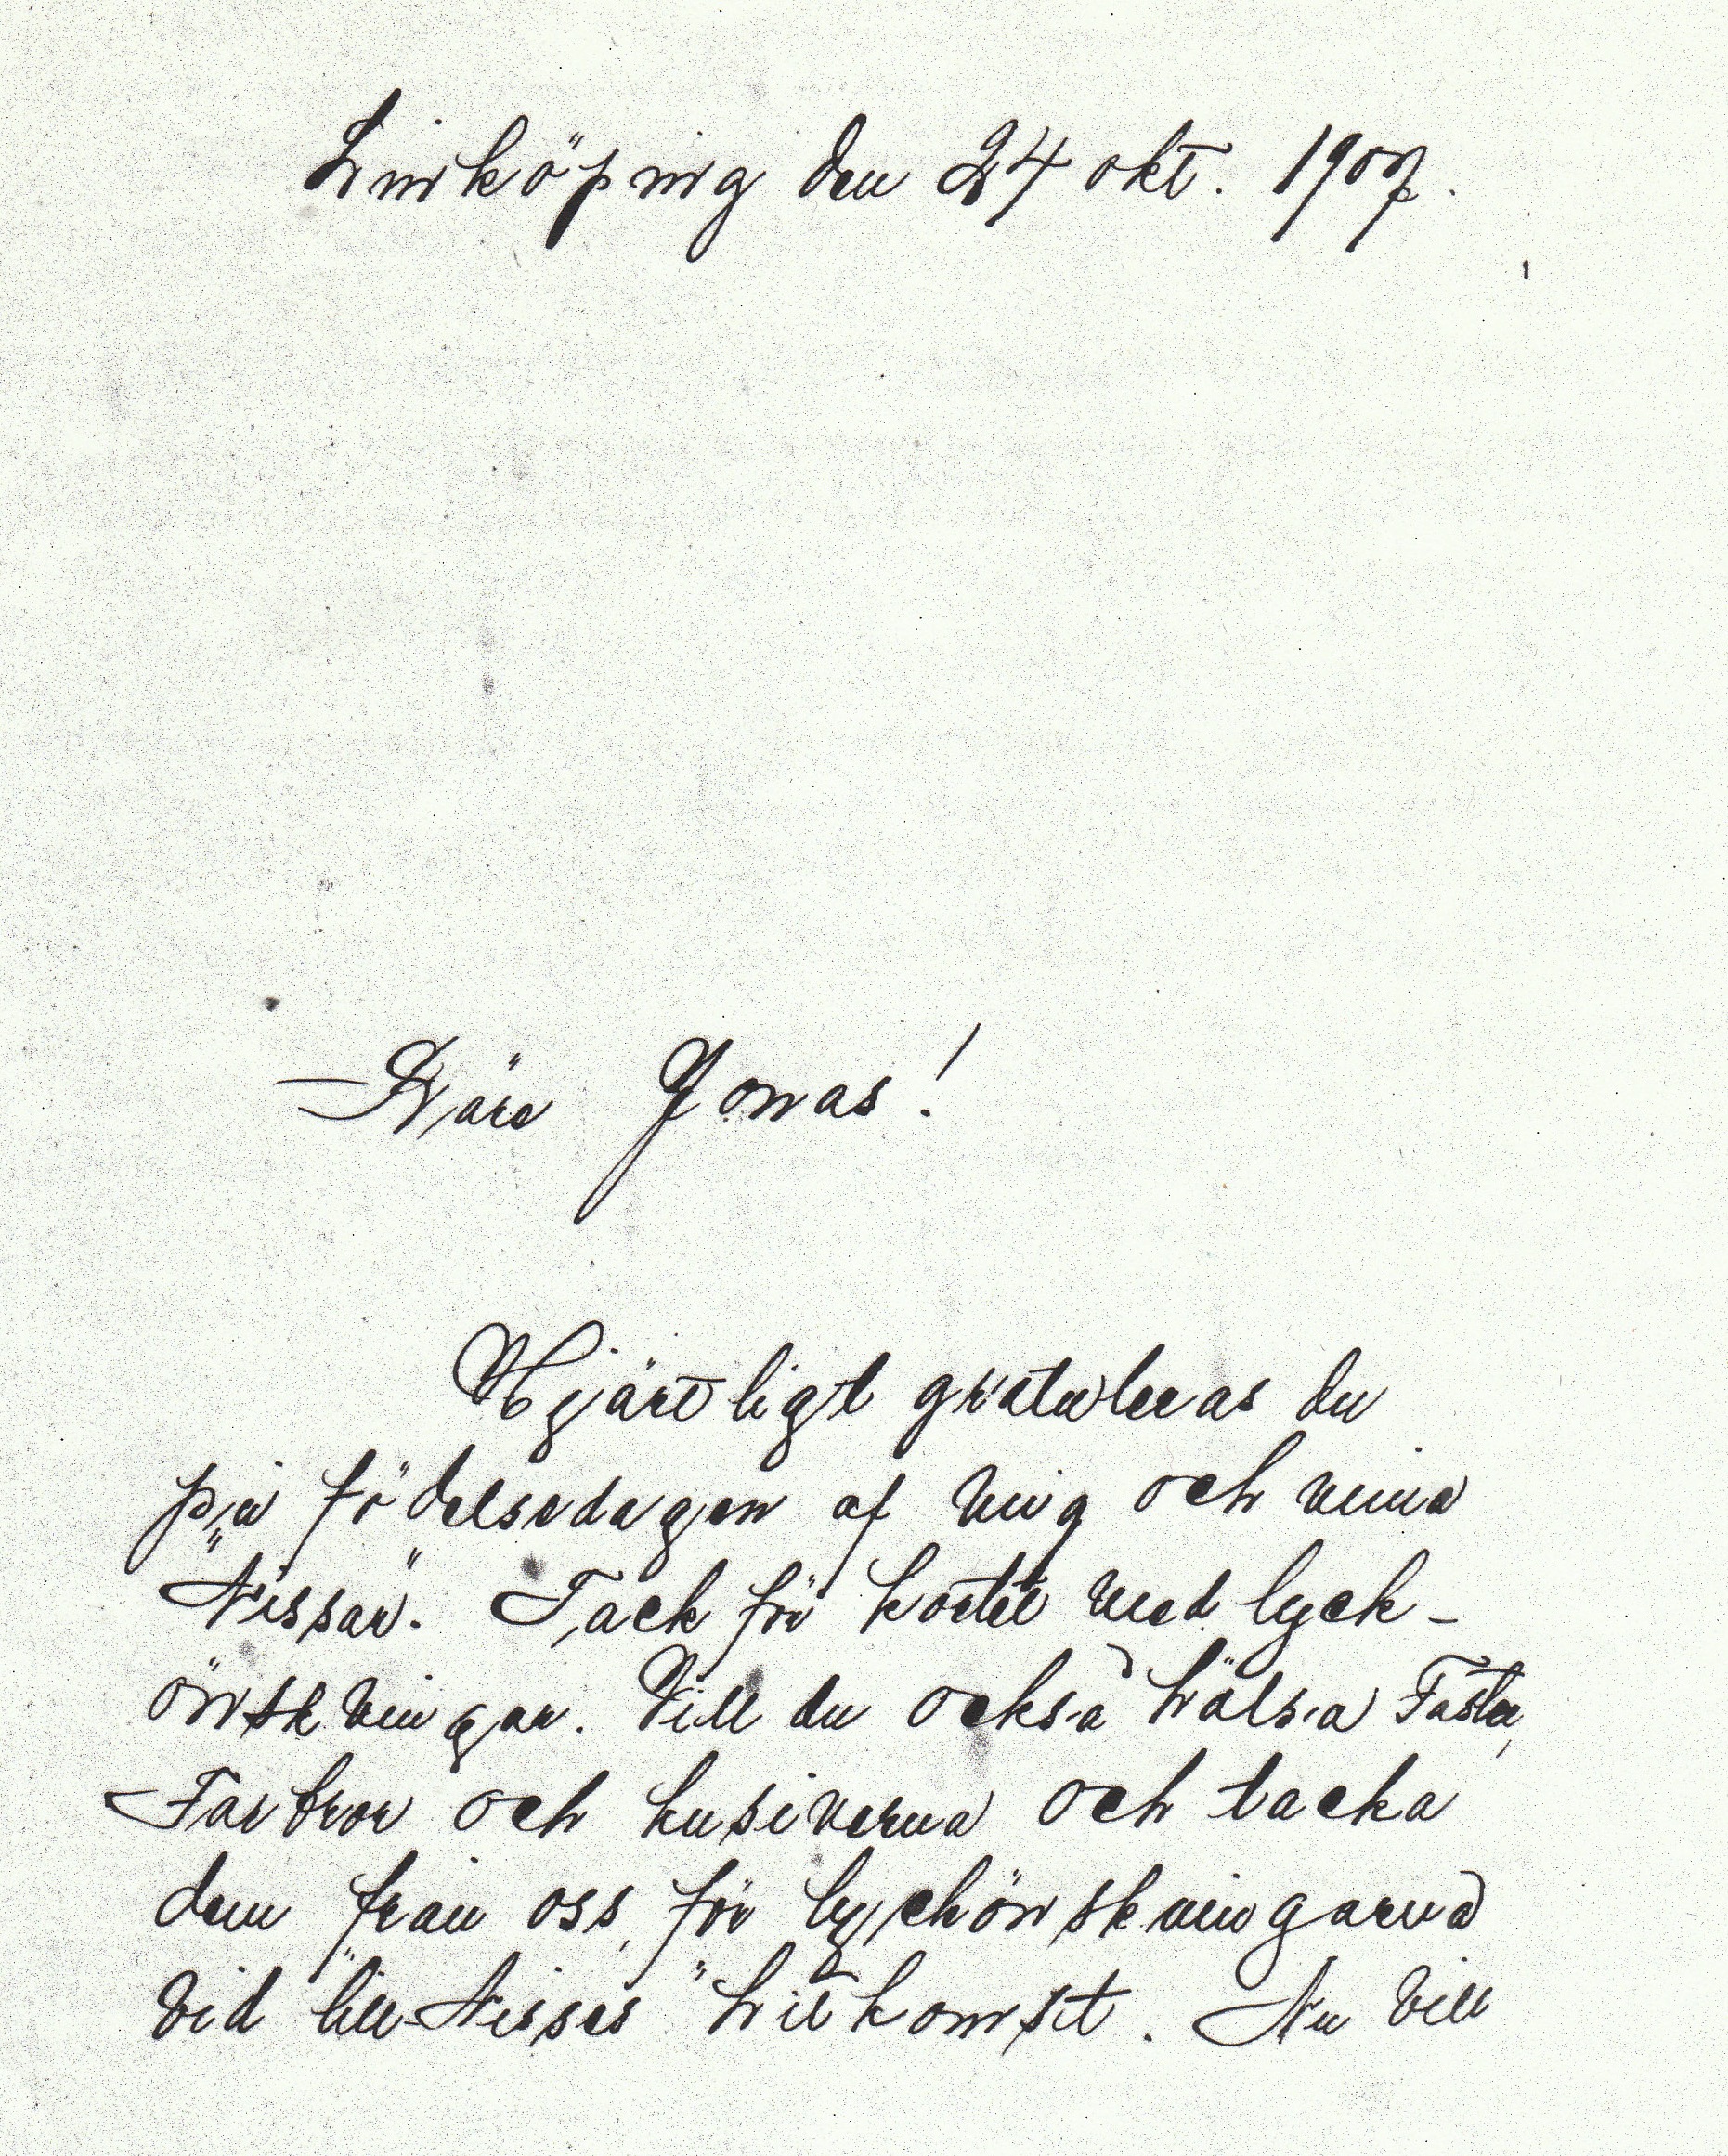 Linköping den 24 okt. 1907.
Käre Jonas!
Hjärtligt gratuleras du
på födelsedagen af mig och mina
"Nissar". Tack för kortet med lyck-
önskningar. Vill du också hälsa Faster,
Farbror och kusinerna och tacka
dem från oss, för lyckönskningarna
vid "lill-Nisses" hitkomst. Nu vill